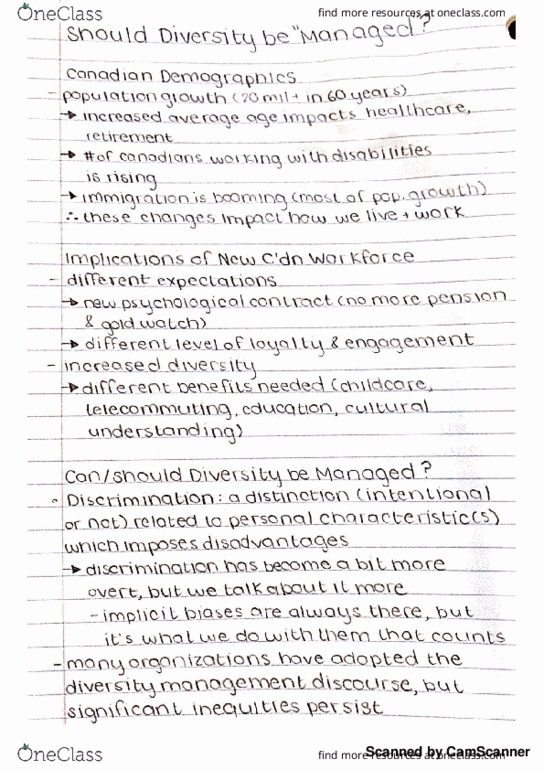 OneClass
find more resources at oneclass.com
Should Diversity be "Managed"?
Canadian Demographics
- population growth (20 mil+ in 60 years)
→ increased average age impacts healthcare,
retirement
→ # of canadians working with disabilities
is rising
→ immigration is booming (most of pop. growth)
∴ these changes impact how we live + work
Implications of New C'dn Workforce
- different expectations
→ new psychological contract (no more pension
& gold watch)
→ different level of loyalty & engagement
- increased diversity
→ different benefits needed (childcare,
telecommuting, education, cultural
understanding)
Can/should Diversity be Managed?
◦ Discrimination: a distinction (intentional
or not) related to personal characteristic(s)
which imposes disadvantages
→ discrimination has become a bit more
overt, but we talk about it more
- implicit biases are always there, but
it's what we do with them that counts
- many organizations have adopted the
diversity management discourse, but
significant inequities persist
OneClass
find more resources at oneclass.com
Scanned by CamScanner